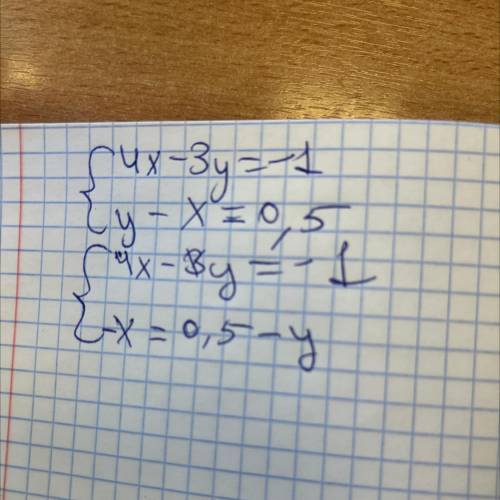 4x-3y=-1
y-x=0,5
4x-3y=-1
-x=0,5-y